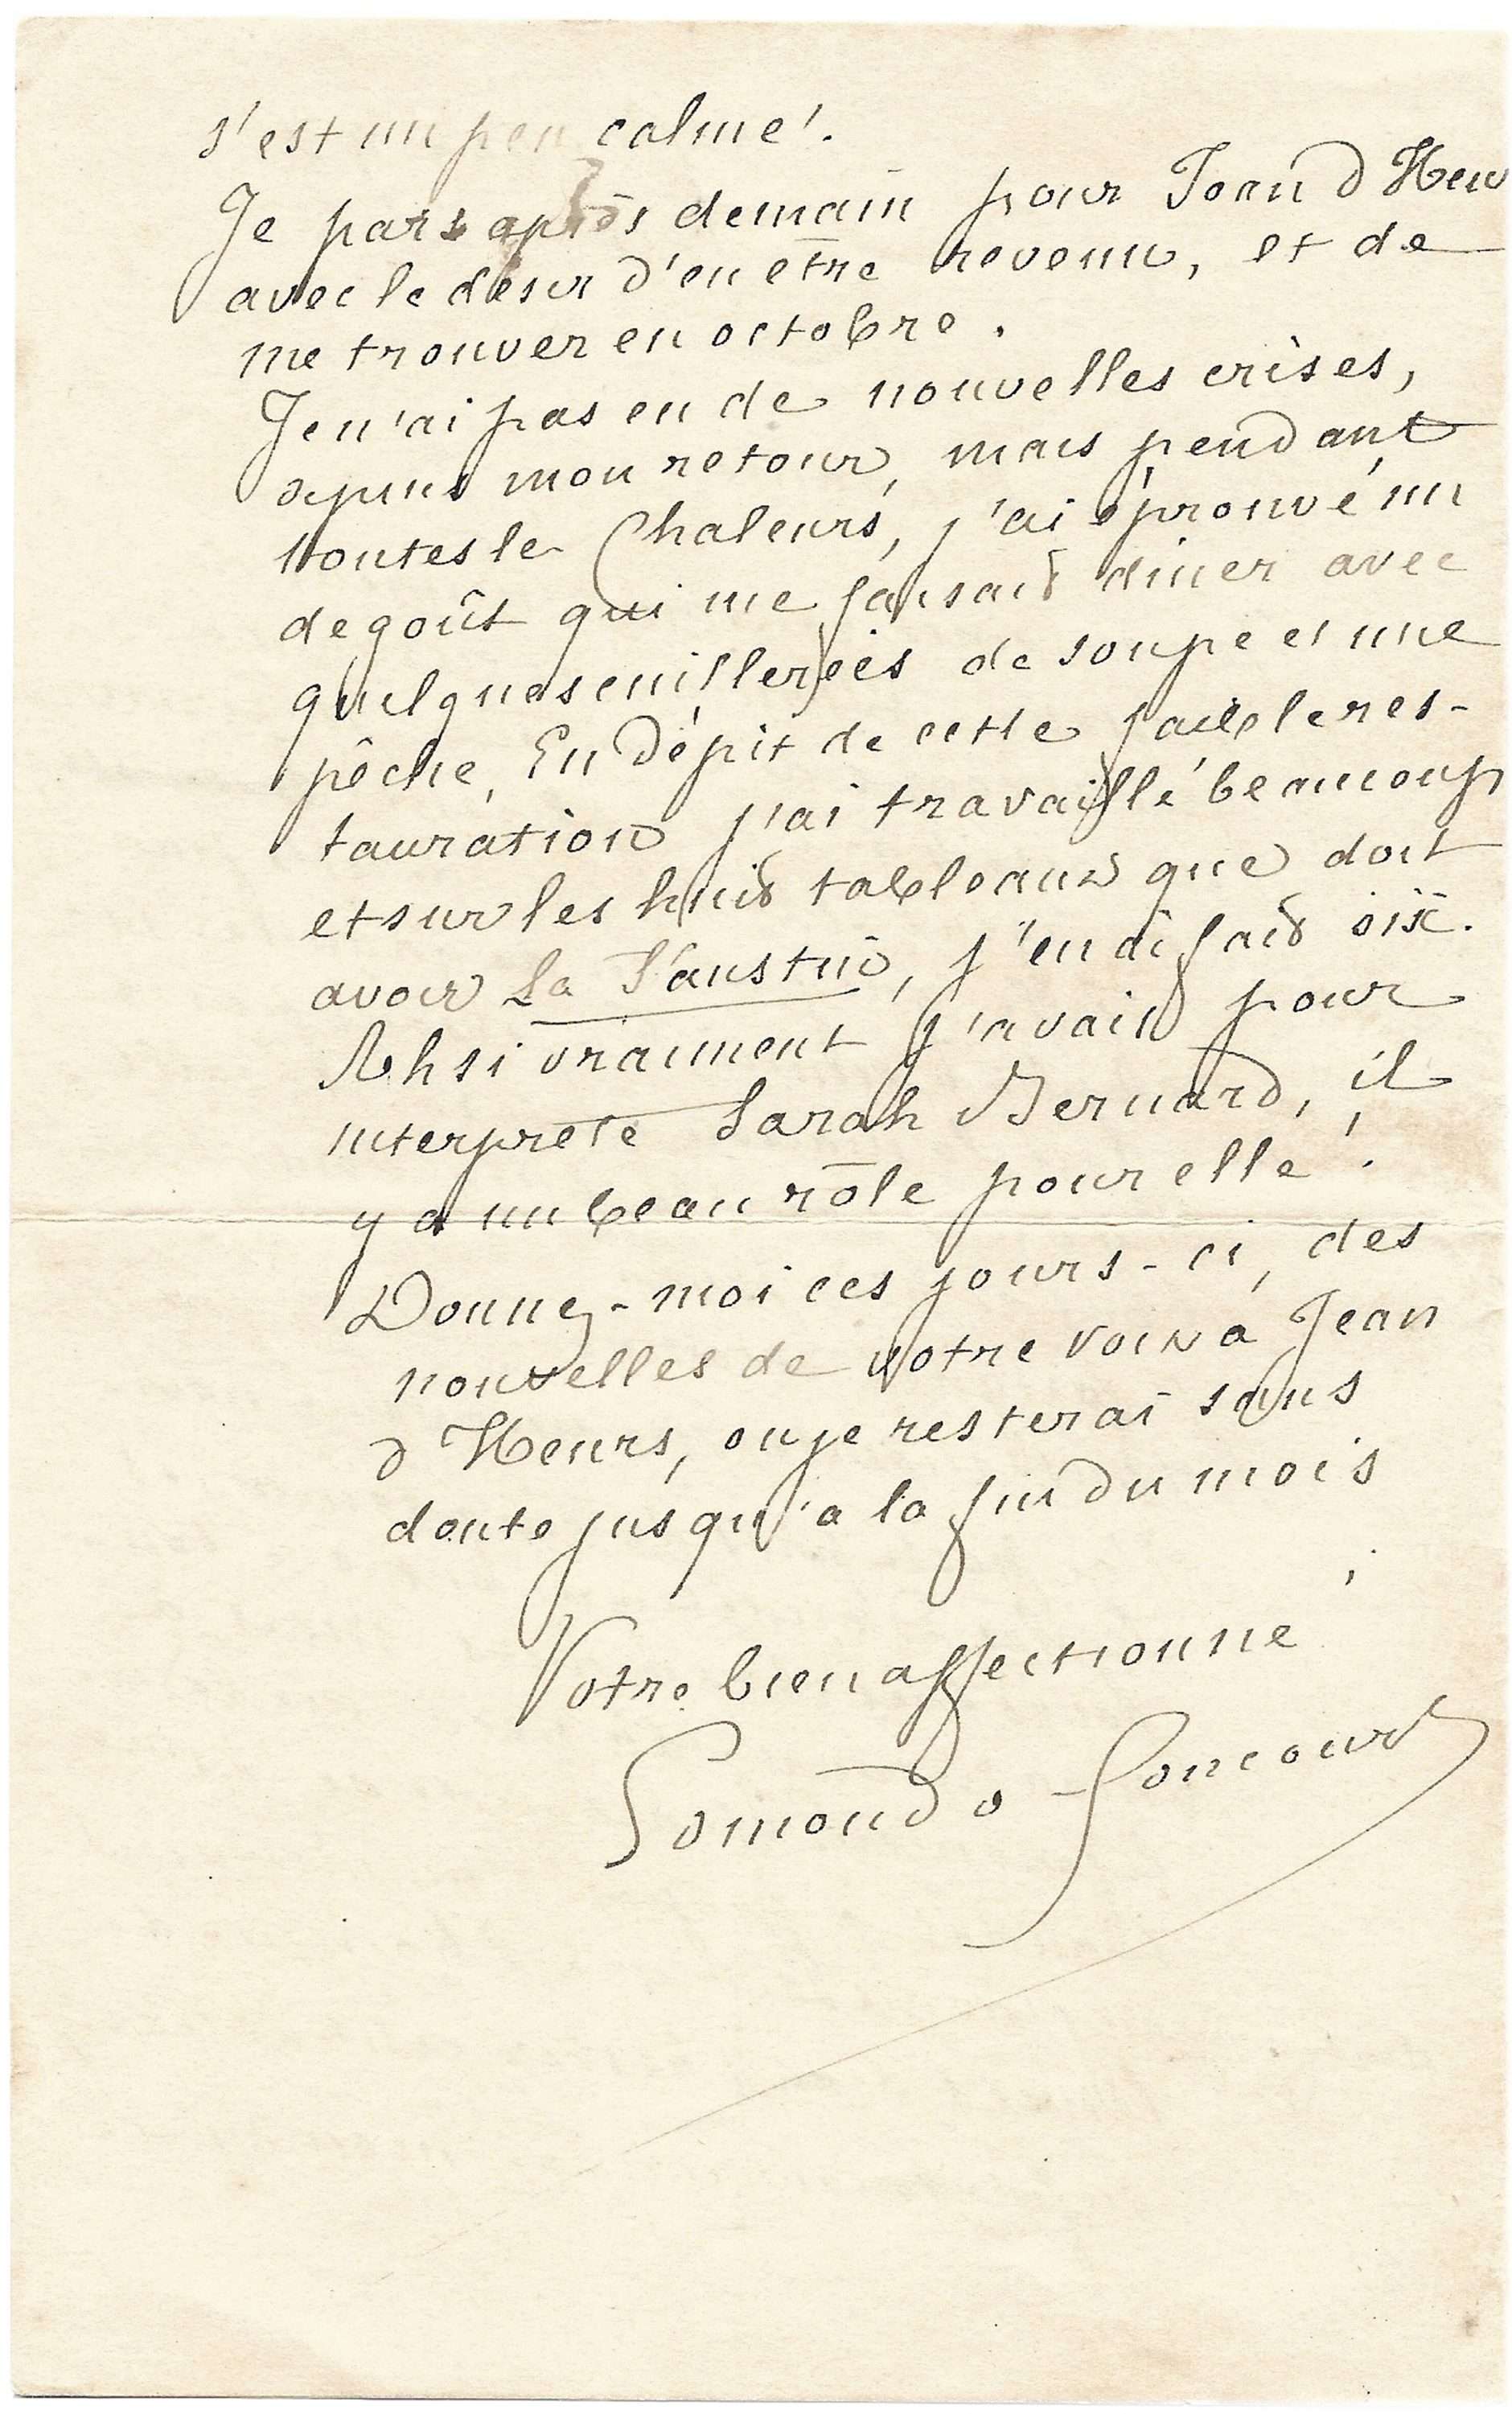 s'est un peu calmé.
Je pars après demain pour Jean d Heu
avec le désir d'en être revenu, et de
me trouver en octobre.
Je n'ai pas eu de nouvelles crises,
depuis mon retour, mais pendant
toutes le Chaleurs, j'ai éprouvé un
degoût qui me faisait diner avec
quelques cuillerées de soupe et une
pêche, En dépit de cette faible res-
tauration j'ai travaillé beaucoup
et sur les huit tableaux que doit
avoir La Faustin, j'en ai fait six.
Ah si vraiment j'avais pour
interprete Sarah Bernard, il
y a un beau rôle pour elle!
Donnez-moi ces jours-ci, des
nouvelles de votre voix a Jean
d Heurs, ou je resterai sans
doute jusqu'a la fin du mois
Votre bien affectionné
Edmond de Goncourt